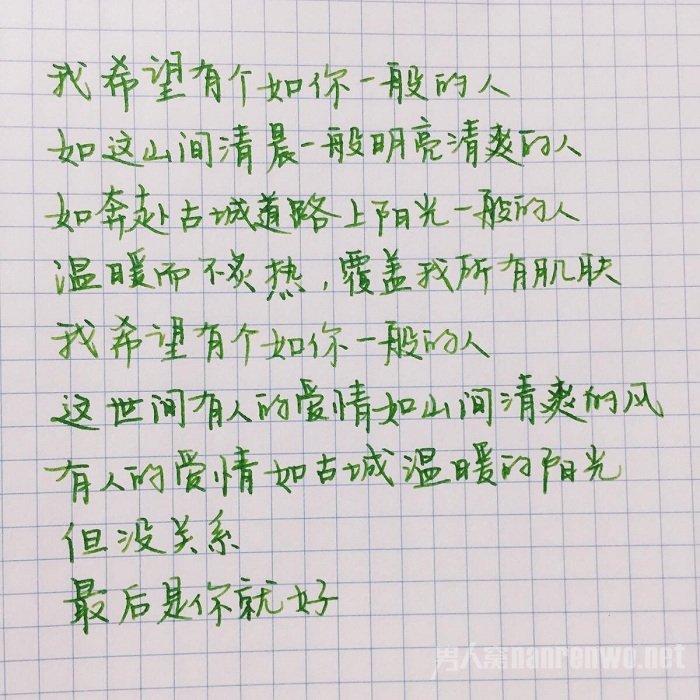 我希望有个如你一般的人
如这山间清晨一般明亮清爽的人
如奔赴古城道路上阳光一般的人
温暖而不炙热,覆盖我所有肌肤
我希望有个如你一般的人
这世间有人的爱情如山间清爽的风
有人的爱情如古城温暖的阳光
但没关系
最后是你就好
男人窝nanrenwo.net